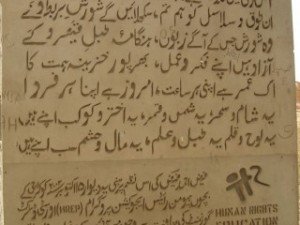 ان طوق و سلاسل کو ہم تم، سکھلائیں گے شورش بربط و نے
وہ شورش جس کے آگے زبوں، ہنگامۂ طبل قیصر و کے
آزاد ہیں اپنے فکر و عمل، بھرپور خزینہ ہمت کا
اک عمر ہے اپنی ہر ساعت، امروز ہے اپنا ہر فردا
یہ شام و سحر یہ شمس و قمر، یہ اختر و کوکب اپنے ہیں
یہ لوح و قلم یہ طبل و علم، یہ مال و حشم سب اپنے ہیں
فیض احمد فیض کی اس نظم پر مبنی یہ دیوار ۱۵ اکتوبر کو کراچی کے
بچوں، ہیومن رائٹس ایجوکیشن پروگرام (HREP) اور سٹی
HUMAN RIGHTS
EDUCATION